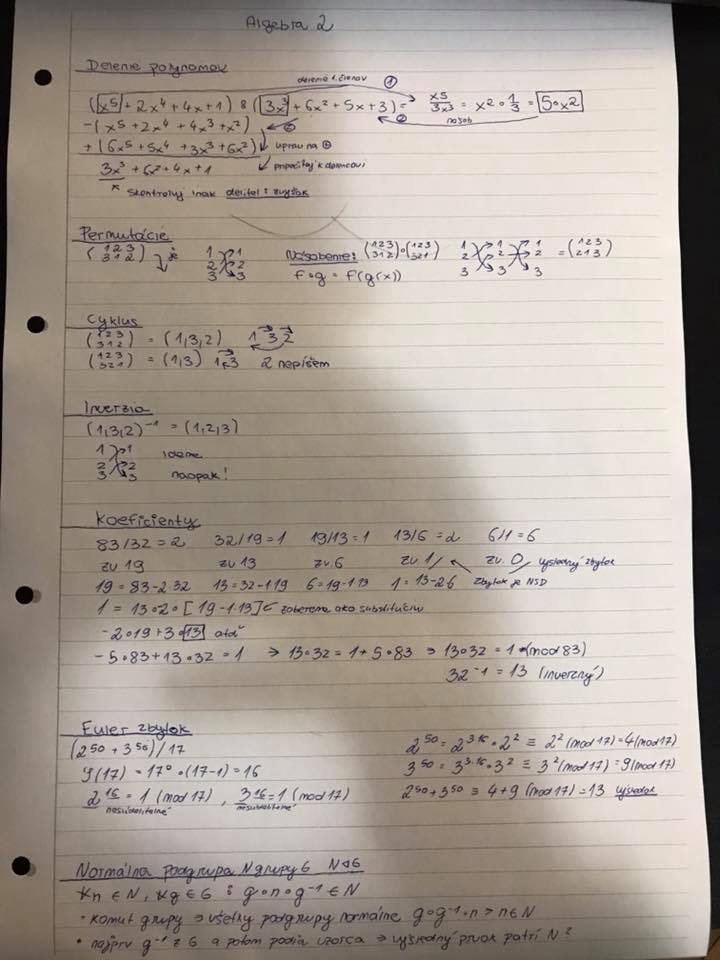 Algebra 2
Delenie polynomov
delenie 1. členov ①
(x⁵ + 2x⁴ + 4x + 1) : (3x³ + 6x² + 5x + 3) = x⁵/3x³ = x² · 1/3 = 5·x²
② násob
-(x⁵ + 2x⁴ + 4x³ + x²)
+(6x⁵ + 5x⁴ + 3x³ + 6x²) uprav na ⊕
3x³ + 6x² + 4x + 1 pripočítaj k delencovi
* skontroluj inak deliteľ : zvyšok
Permutácie
(1 2 3 / 3 1 2) je 1 1 2 2 3 3 Násobenie: (1 2 3 / 3 1 2) ∘ (1 2 3 / 3 2 1) 1 1 1 2 2 2 3 3 3 = (1 2 3 / 2 1 3)
f ∘ g = f(g(x))
Cyklus
(1 2 3 / 3 1 2) = (1,3,2) 1 3 2
(1 2 3 / 3 2 1) = (1,3) 1 3 2 nepíšem
Inverzia
(1,3,2)⁻¹ = (1,2,3)
1 1 ideme
2 2
3 3 naopak!
Koeficienty
83/32 = 2 32/19 = 1 19/13 = 1 13/6 = 2 6/1 = 6
zv 19 zv 13 zv. 6 zv 1 zv. 0 výsledný zbytok
19 = 83-2·32 13 = 32-1·19 6 = 19-1·13 1 = 13-2·6 zbytok je NSD
1 = 13·2·[19-1·13] ← zobereme ako substitúciu
-2·19+3·13 atď
-5·83+13·32 = 1 → 13·32 = 1+5·83 ⇒ 13·32 = 1 (mod 83)
32⁻¹ = 13 (inverzný)
Euler zbytok
(2⁵⁰ + 3⁵⁰)/17
φ(17) = 17⁰·(17-1) = 16
2¹⁶ = 1 (mod 17), 3¹⁶ = 1 (mod 17)
nesúdeliteľné nesúdeliteľné
2⁵⁰ = 2³·¹⁶·2² ≡ 2² (mod 17) = 4 (mod 17)
3⁵⁰ = 3³·¹⁶·3² ≡ 3² (mod 17) = 9 (mod 17)
2⁵⁰+3⁵⁰ ≡ 4+9 (mod 17) = 13 výsledok
Normálna podgrupa N grupy G N⊲G
∀n ∈ N, ∀g ∈ G : g∘n∘g⁻¹ ∈ N
• komut grupy ⇒ všetky podgrupy normálne g∘g⁻¹∘n ⇒ n∈N
• najprv g⁻¹ z G a potom podľa vzorca ⇒ výsledný prvok patrí N?